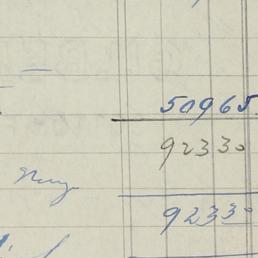 50965
92330
92330